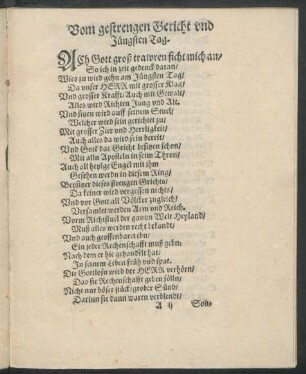 Vom gestrengen Gericht vnd
Jüngsten Tag.
ACh Gott groß trawren ficht mich an/
So ich in zeit gedenck daran/
Wies zu wird gehn am Jüngsten Tag/
Da vnser HERR mit grosser Klag/
Vnd grosser Krafft/ Auch mit Gewalt/
Alles wird Richten Jung vnd Alt.
Vnd sitzen wird auff seinem Stuel/
Welcher wird sein gerichtet zu/
Mit grosser Zier vnd Herrligkeit/
Auch alles da wird sein bereit/
Vnd Gott das Gricht besitzen schon/
Mit alln Aposteln in seim Thron/
Auch all heylge Engel mit ihm
Gesehen werden in diesem Ring/
Besitzer dieses strengen Grichts/
Da keiner wird vergessen nichts/
Vnd vor Gott all Völcker zugleich/
Versamlet werden Arm vnd Reich.
Vorm Richtstuel der gantzen Welt Heyland/
Muß alles werden recht bekandt/
Vnd auch geoffenbaret ehn/
Ein jeder Rechenschafft muß gebn/
Nach dem er hie gehandelt hat/
In seinem Leben früh vnd spat.
Die Gottlosn wird der HERR verhörn/
Das sie Rechenschafft geben sölln/
Nicht nur böser stück/ grober Sünd/
Darinn sie dann waren verblendt/
A ij Son-